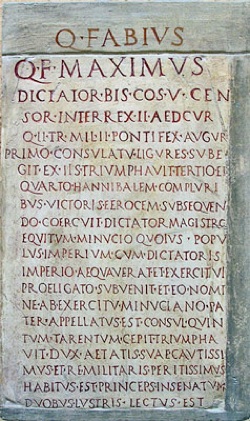 Q·FABIVS
Q·F·MAXIMVS
DICTATOR·BIS·COS·V·CEN
SOR·INTERREX·II·AED·CVR
Q·II·TR·MIL·II·PONTIFEX·AVGVR
PRIMO·CONSVLATV·LIGVRES·SVBE
GIT·EX·IIS·TRIVMPHAVIT·TERTIO·ET
QVARTO·HANNIBALEM·COMPLVRI
BVS·VICTORIS·FEROCEM·SVBSEQVEN
DO·COERCVIT·DICTATOR·MAGISTRO
EQVITVM·MINVCIO·QVOIVS·POPV
LVS·IMPERIVM·CVM·DICTATORIS
IMPERIO·AEQVAVERAT·ET·EXERCITVI
PROFLIGATO·SVBVENIT·ET·EO·NOMI
NE·AB·EXERCITV·MINVCIANO·PA
TER·APPELLATVS·EST·CONSVL·QVIN
TVM·TARENTVM·CEPIT·TRIVMPHA
VIT·DVX·AETATIS·SVAE·CAVTISSI
MVS·ET·REI·MILITARIS·PERITISSIMVS
HABITVS·EST·PRINCEPS·IN·SENATVM
DVOBVS·LVSTRIS·LECTVS·EST